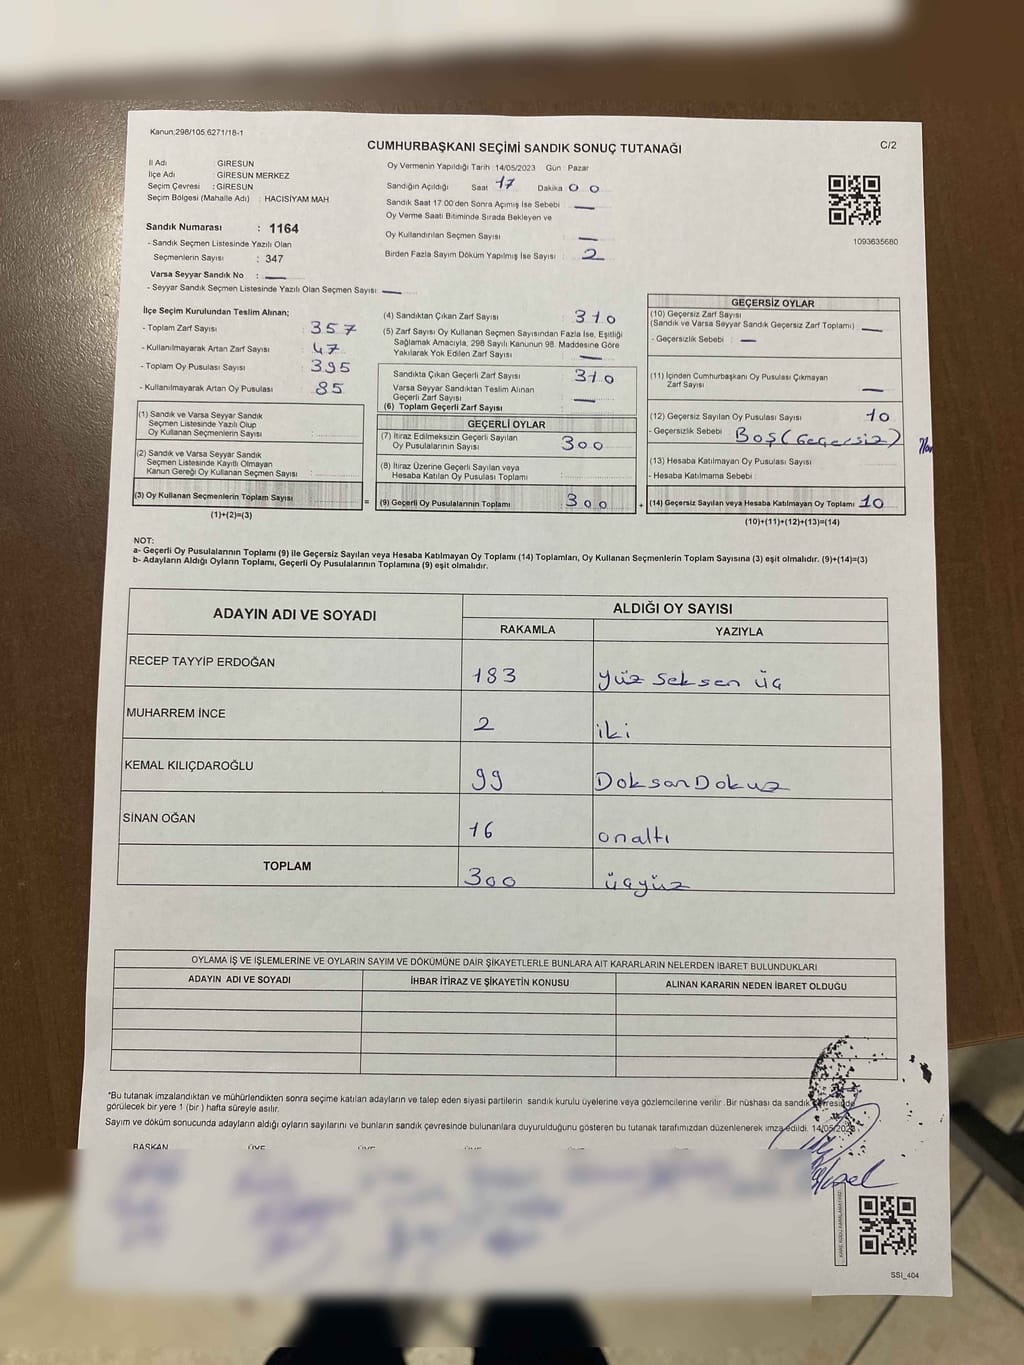 Kanun;298/105 6271/18-1
CUMHURBAŞKANI SEÇİMİ SANDIK SONUÇ TUTANAĞI
C/2
İl Adı : GİRESUN
İlçe Adı : GİRESUN MERKEZ
Seçim Çevresi : GİRESUN
Seçim Bölgesi (Mahalle Adı) : HACISİYAM MAH
Sandık Numarası : 1164
- Sandık Seçmen Listesinde Yazılı Olan
Seçmenlerin Sayısı : 347
Varsa Seyyar Sandık No : —
- Seyyar Sandık Seçmen Listesinde Yazılı Olan Seçmen Sayısı: —
Oy Vermenin Yapıldığı Tarih 14/05/2023 Gün : Pazar
Sandığın Açıldığı Saat 17 Dakika 00
Sandık Saat 17:00'den Sonra Açımış İse Sebebi : —
Oy Verme Saati Bitiminde Sırada Bekleyen ve
Oy Kullandırılan Seçmen Sayısı : —
Birden Fazla Sayım Döküm Yapılmış İse Sayısı : 2
1093635680
İlçe Seçim Kurulundan Teslim Alınan;
- Toplam Zarf Sayısı : 357
- Kullanılmayarak Artan Zarf Sayısı : 47
- Toplam Oy Pusulası Sayısı : 395
- Kullanılmayarak Artan Oy Pusulası : 85
(1) Sandık ve Varsa Seyyar Sandık
Seçmen Listesinde Yazılı Olup
Oy Kullanan Seçmenlerin Sayısı :
(2) Sandık ve Varsa Seyyar Sandık
Seçmen Listesinde Kayıtlı Olmayan
Kanun Gereği Oy Kullanan Seçmen Sayısı :
(3) Oy Kullanan Seçmenlerin Toplam Sayısı :
(1)+(2)=(3)
=
(4) Sandıktan Çıkan Zarf Sayısı : 310
(5) Zarf Sayısı Oy Kullanan Seçmen Sayısından Fazla İse, Eşitliği
Sağlamak Amacıyla, 298 Sayılı Kanunun 98. Maddesine Göre
Yakılarak Yok Edilen Zarf Sayısı : —
Sandıkta Çıkan Geçerli Zarf Sayısı : 310
Varsa Seyyar Sandıktan Teslim Alınan
Geçerli Zarf Sayısı : —
(6) Toplam Geçerli Zarf Sayısı :
GEÇERLİ OYLAR
(7) İtiraz Edilmeksizin Geçerli Sayılan
Oy Pusulalarının Sayısı : 300
(8) İtiraz Üzerine Geçerli Sayılan veya
Hesaba Katılan Oy Pusulası Toplamı :
(9) Geçerli Oy Pusulalarının Toplamı : 300
+
GEÇERSİZ OYLAR
(10) Geçersiz Zarf Sayısı
(Sandık ve Varsa Seyyar Sandık Geçersiz Zarf Toplamı) : —
- Geçersizlik Sebebi : —
(11) İçinden Cumhurbaşkanı Oy Pusulası Çıkmayan
Zarf Sayısı : —
(12) Geçersiz Sayılan Oy Pusulası Sayısı : 10
- Geçersizlik Sebebi : Boş (Geçersiz)
(13) Hesaba Katılmayan Oy Pusulası Sayısı :
- Hesaba Katılmama Sebebi :
(14) Geçersiz Sayılan veya Hesaba Katılmayan Oy Toplamı : 10
(10)+(11)+(12)+(13)=(14)
NOT:
a- Geçerli Oy Pusulalarının Toplamı (9) ile Geçersiz Sayılan veya Hesaba Katılmayan Oy Toplamı (14) Toplamları, Oy Kullanan Seçmenlerin Toplam Sayısına (3) eşit olmalıdır. (9)+(14)=(3)
b- Adayların Aldığı Oyların Toplamı, Geçerli Oy Pusulalarının Toplamına (9) eşit olmalıdır.
ADAYIN ADI VE SOYADI
ALDIĞI OY SAYISI
RAKAMLA YAZIYLA
RECEP TAYYİP ERDOĞAN 183 yüz seksen üç
MUHARREM İNCE 2 iki
KEMAL KILIÇDAROĞLU 99 Doksan Dokuz
SİNAN OĞAN 16 onaltı
TOPLAM 300 üçyüz
OYLAMA İŞ VE İŞLEMLERİNE VE OYLARIN SAYIM VE DÖKÜMÜNE DAİR ŞİKAYETLERLE BUNLARA AİT KARARLARIN NELERDEN İBARET BULUNDUKLARI
ADAYIN ADI VE SOYADI İHBAR İTİRAZ VE ŞİKAYETİN KONUSU ALINAN KARARIN NEDEN İBARET OLDUĞU
*Bu tutanak imzalandıktan ve mühürlendikten sonra seçime katılan adayların ve talep eden siyasi partilerin sandık kurulu üyelerine veya gözlemcilerine verilir .Bir nüshası da sandık çevresinde
görülecek bir yere 1 (bir ) hafta süreyle asılır.
Sayım ve döküm sonucunda adayların aldığı oyların sayılarını ve bunların sandık çevresinde bulunanlara duyurulduğunu gösteren bu tutanak tarafımızdan düzenlenerek imza edildi. 14/05/2023
BAŞKAN ÜYE ÜYE ÜYE ÜYE
SSİ_404